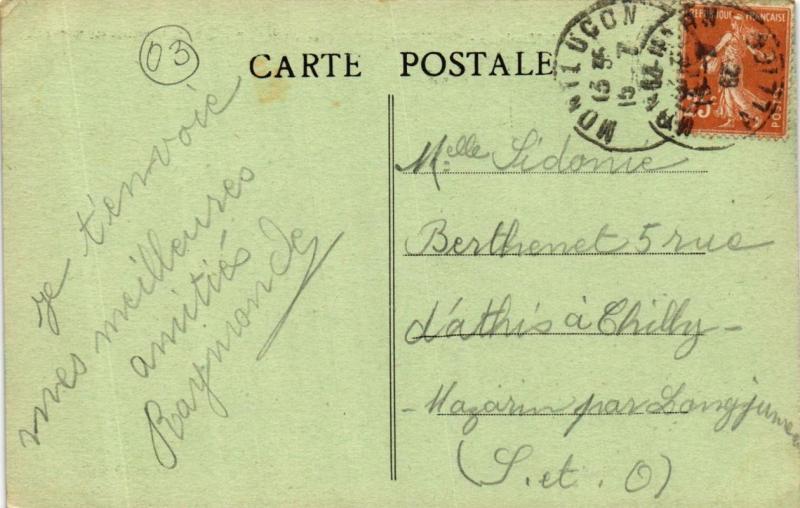 03
CARTE POSTALE
MONTLUÇON
RÉPUBLIQUE FRANÇAISE
je t'envoie
mes meilleures
amitiés
Raymonde
Melle Sidonie
Berthenet 5 rue
d'athis à Chilly-
-Mazarin par Longjumeau
(S. et. O)